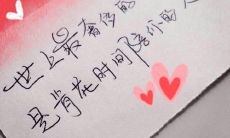 世上最奢侈的
是肯花时间陪你的人